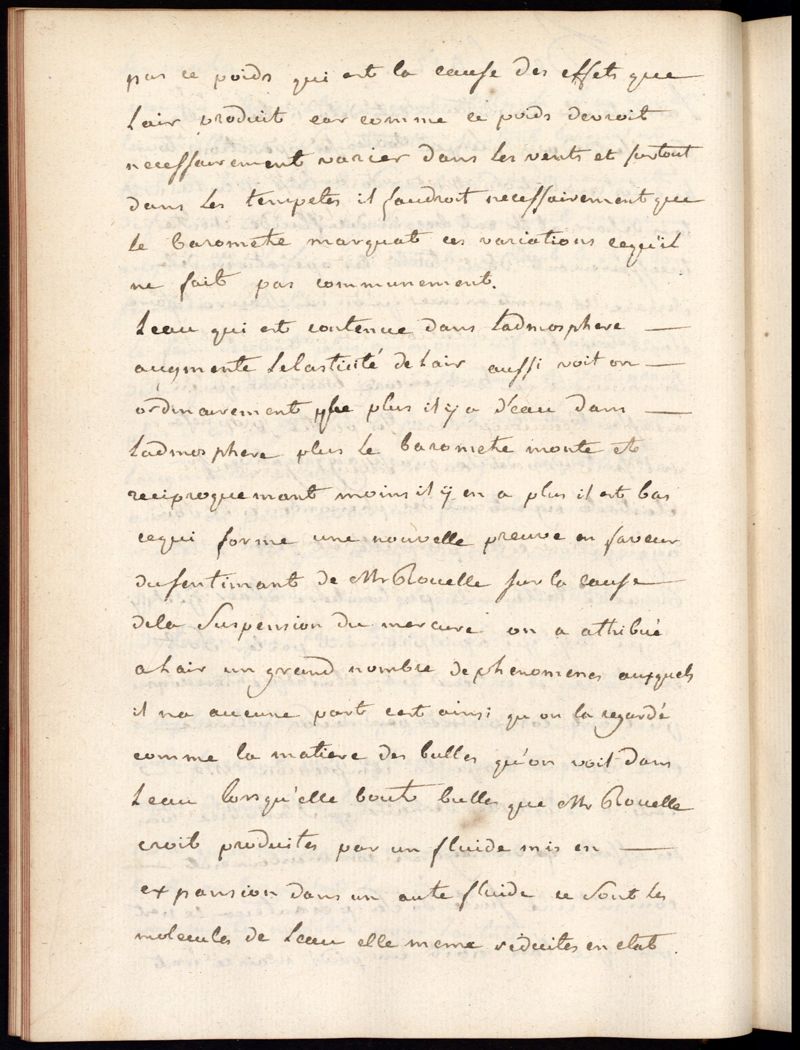 pas ce poids qui est la cause des effets que
Lair produit car comme ce poids devroit
necessairement varier dans les vents et surtout
dans les tempetes il faudroit necessairement que
le barometre marquat ces variations cequ'il
ne fait pas communement.
Leau qui est contenue dans Ladmosphere —
augmente Lelasticité de Lair aussi voit on —
ordinairement que plus il y a d'eau dans —
Ladmosphere plus Le barometre monte et
reciproquemant moins il ÿ en a plus il est bas
cequi forme une nouvelle preuve en faveur
du sentimant de Mr Rouelle sur la cause
dela Suspension du mercure on a attribué
a Lair un grand nombre de phenomenes auxquels
il na aucune part cest ainsi qu'on la regardé
comme la matiere des bulles qu'on voit dans
Leau lorsqu'elle bout bulles que Mr Rouelle
croit produites par un fluide mis en —
expansion dans un autre fluide ce sont les
molecules de Leau elle meme réduites en etat